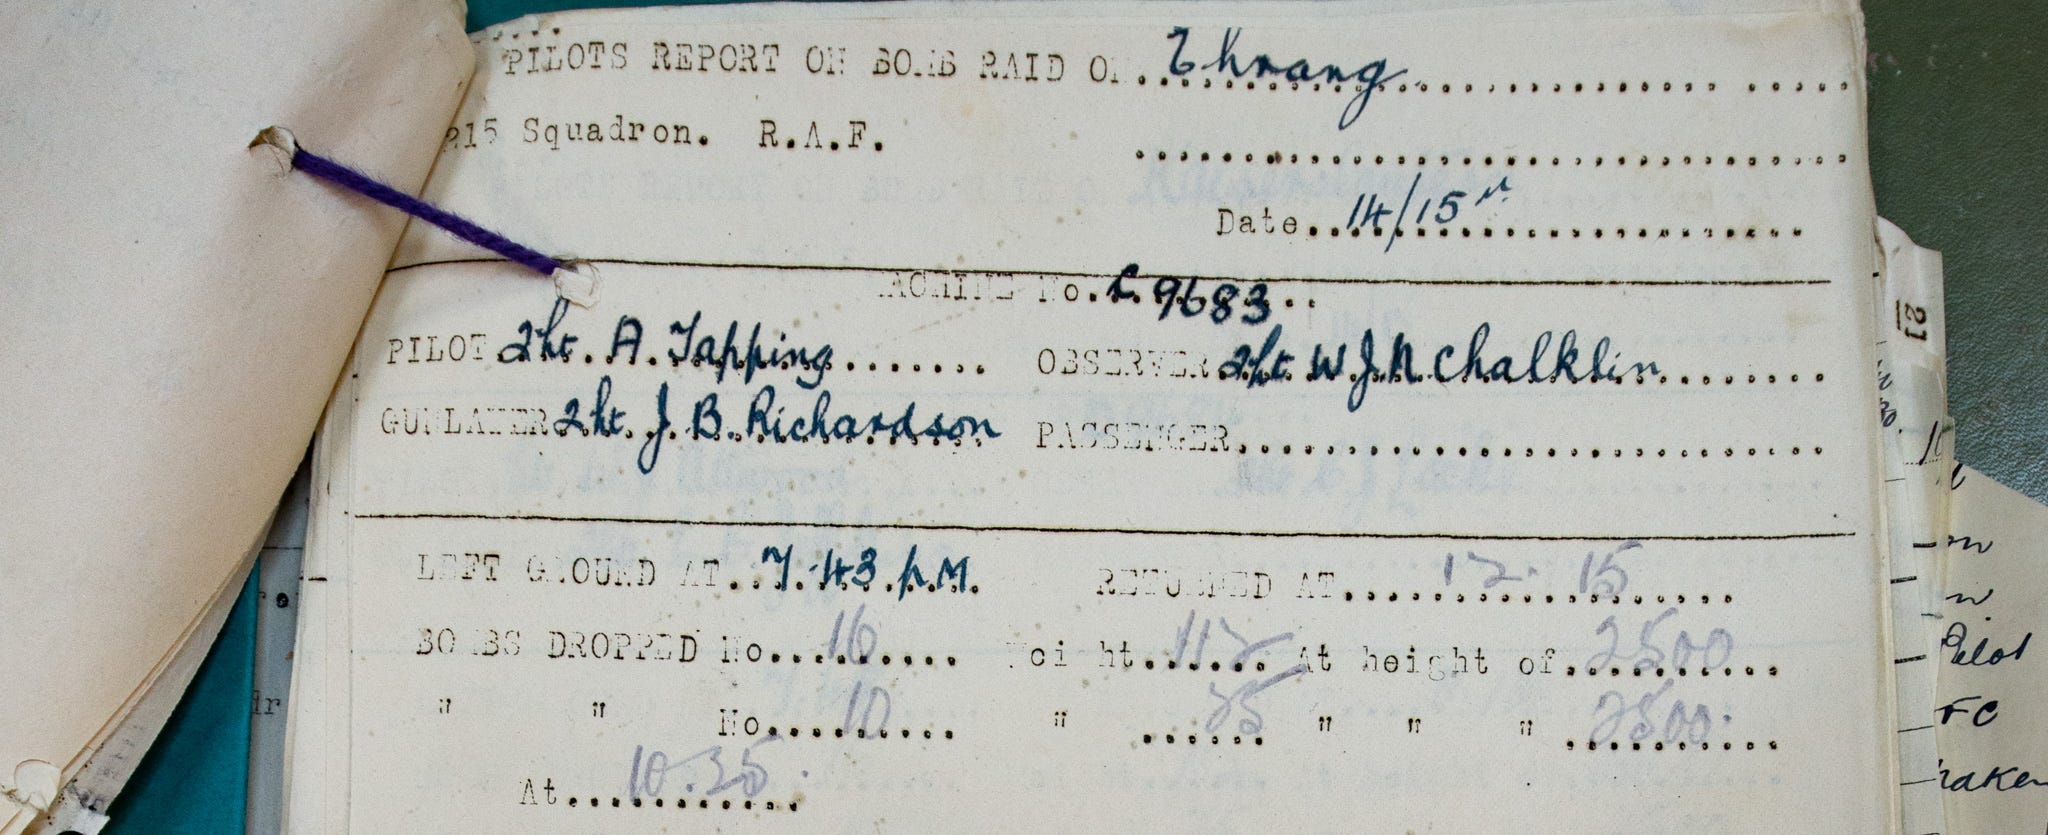 PILOTS REPORT ON BOMB RAID ON Ehrang
215 Squadron. R.A.F.
Date 14/15th
MACHINE No. C 9683
PILOT 2Lt. A. Tapping OBSERVER 2Lt W J. N Chalklin
GUNLAYER 2Lt. J. B. Richardson PASSENGER
LEFT GROUND AT 7.43 p.M. RETURNED AT 12.15
BOMBS DROPPED No. 16 Weight 112 At height of 2500
" " No. 10 " 25 " " " 2500.
At 10.35.
21
Pilot